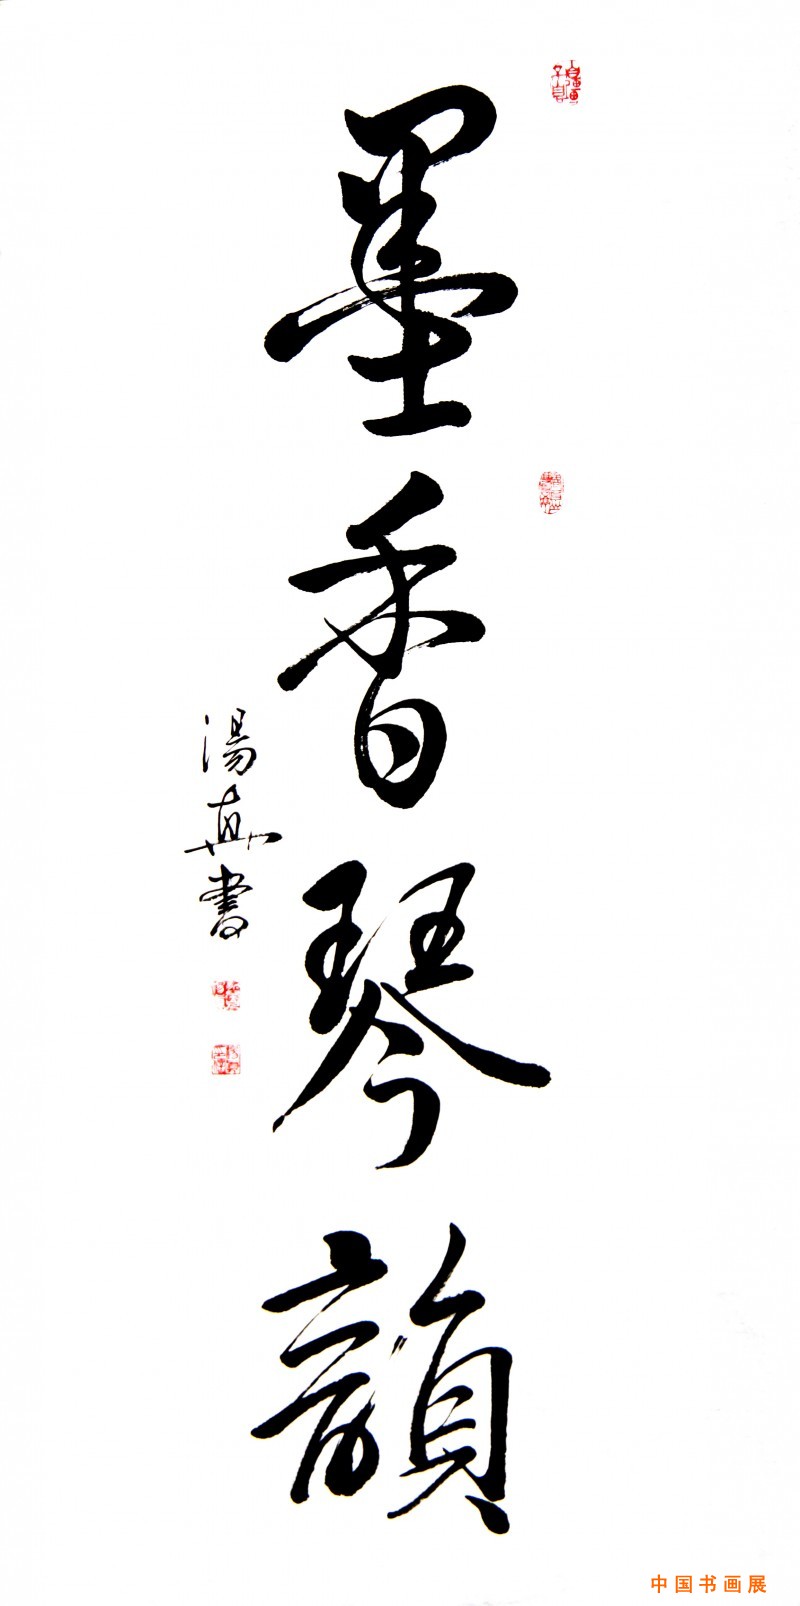 墨香琴韻
湯真書
中国书画展